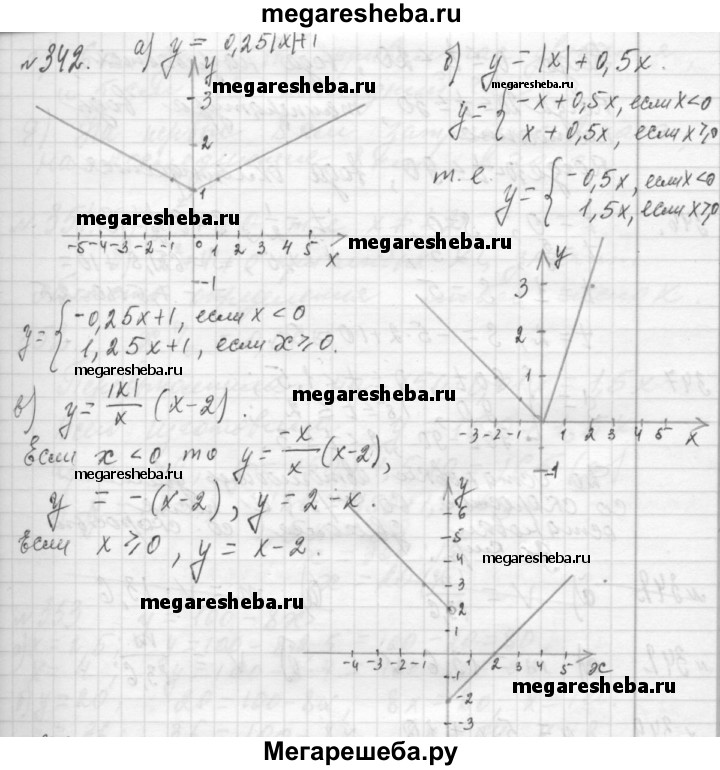 megaresheba.ru
№342. а) y = 0,25|x|+1
y
3
2
1
-5 -4 -3 -2 -1 0 1 2 3 4 5 x
-1
y = { -0,25x+1, если x < 0
1,25x+1, если x ⩾ 0.
б) y = |x| + 0,5x.
y = { -x + 0,5x, если x<0
x + 0,5x, если x⩾0
т. е. y = { -0,5x, если x<0
1,5x, если x⩾0
y
3
2
1
-3 -2 -1 1 2 3 4 5 x
-1
в) y = |x|/x (x-2).
Если x < 0, то y = -x/x (x-2),
y = -(x-2), y = 2-x.
Если x ⩾ 0, y = x-2.
y
6
5
4
3
2
1
-4 -3 -2 -1 1 2 3 4 5 x
-1
-2
-3
megaresheba.ru
megaresheba.ru
megaresheba.ru
megaresheba.ru
megaresheba.ru
megaresheba.ru
megaresheba.ru
megaresheba.ru
megaresheba.ru
megaresheba.ru
megaresheba.ru
Мегарешеба.ру